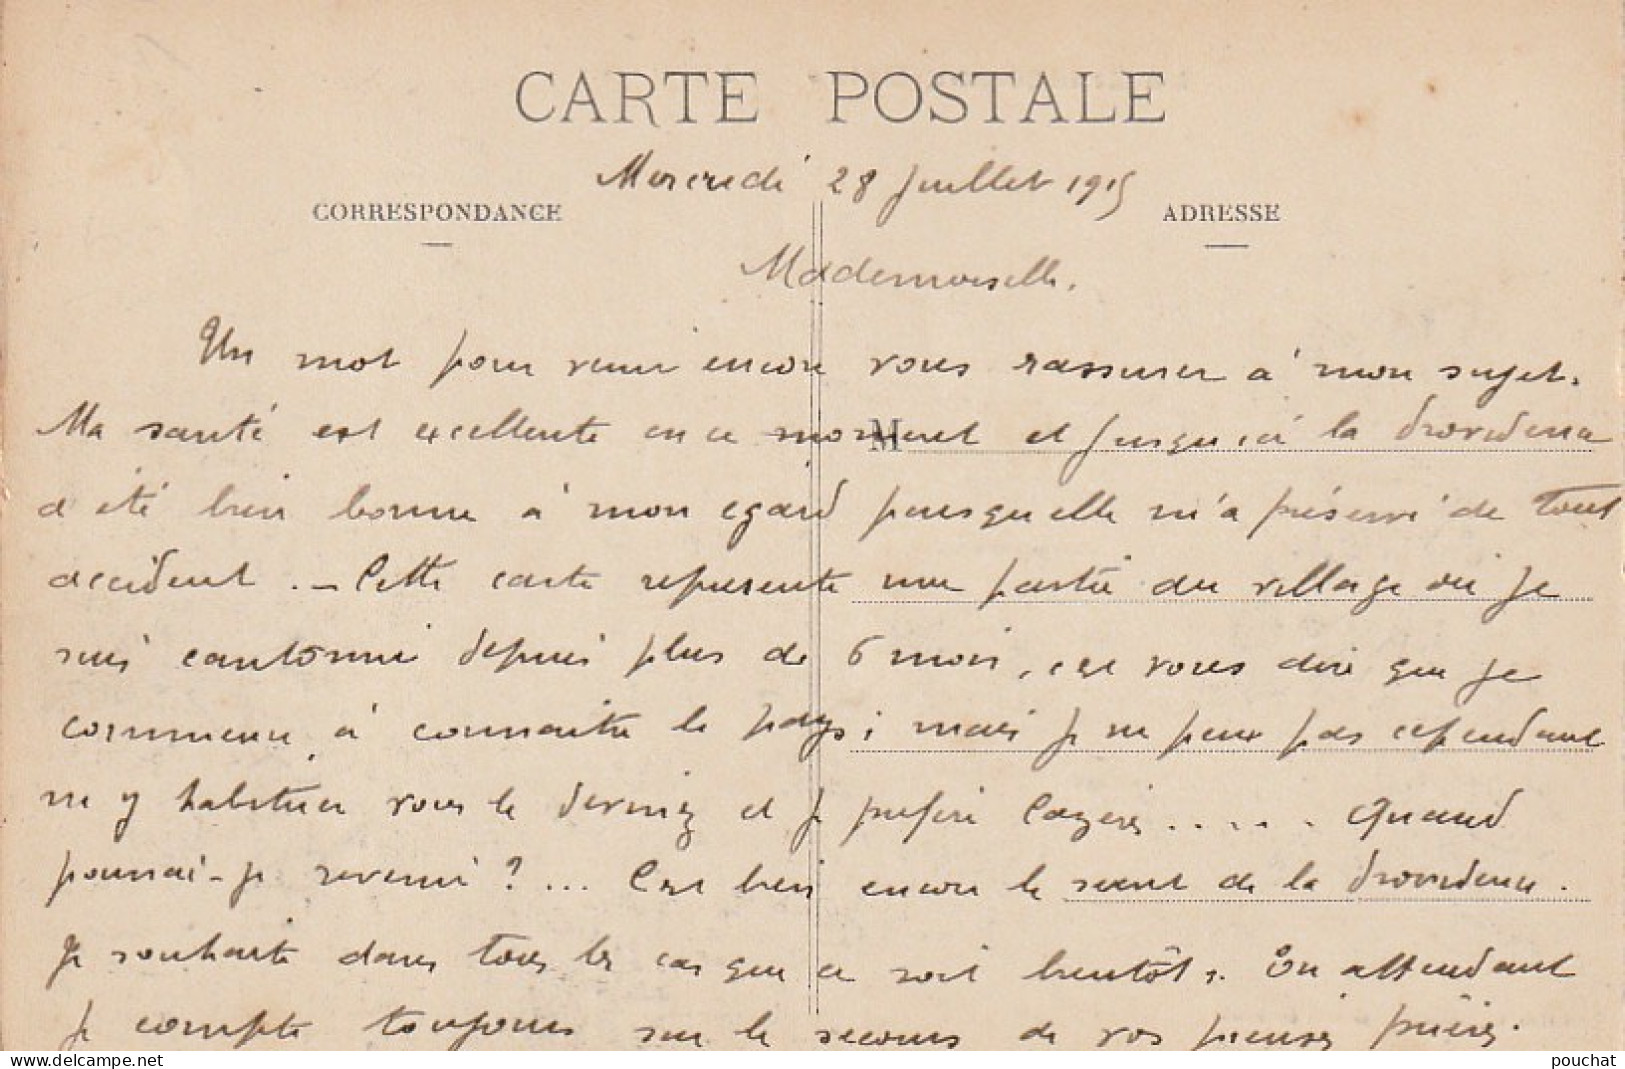 CARTE POSTALE
Mercredi 28 Juillet 1915
CORRESPONDANCE ADRESSE
Mademoiselle.
Un mot pour venir encore vous rassurer à mon sujet.
Ma santé est excellente en ce moment et jusqu'ici la Providence
M
a été bien bonne à mon égard puisqu'elle m'a préservé de tout
accident. – Cette carte represente une partie du village où je
suis cantonné depuis plus de 6 mois, c'est vous dire que je
commence à connaitre le pays; mais je ne peux pas cependant
m'y habituer vous le devinez et je préfère Cazères..... Quand
pourrai-je revenir ?... C'est bien encore le secret de la Providence.
Je souhaite dans tous les cas que ce soit bientôt. En attendant
je compte toujours sur le secours de vos pieuses prières.
www.delcampe.net pouchat